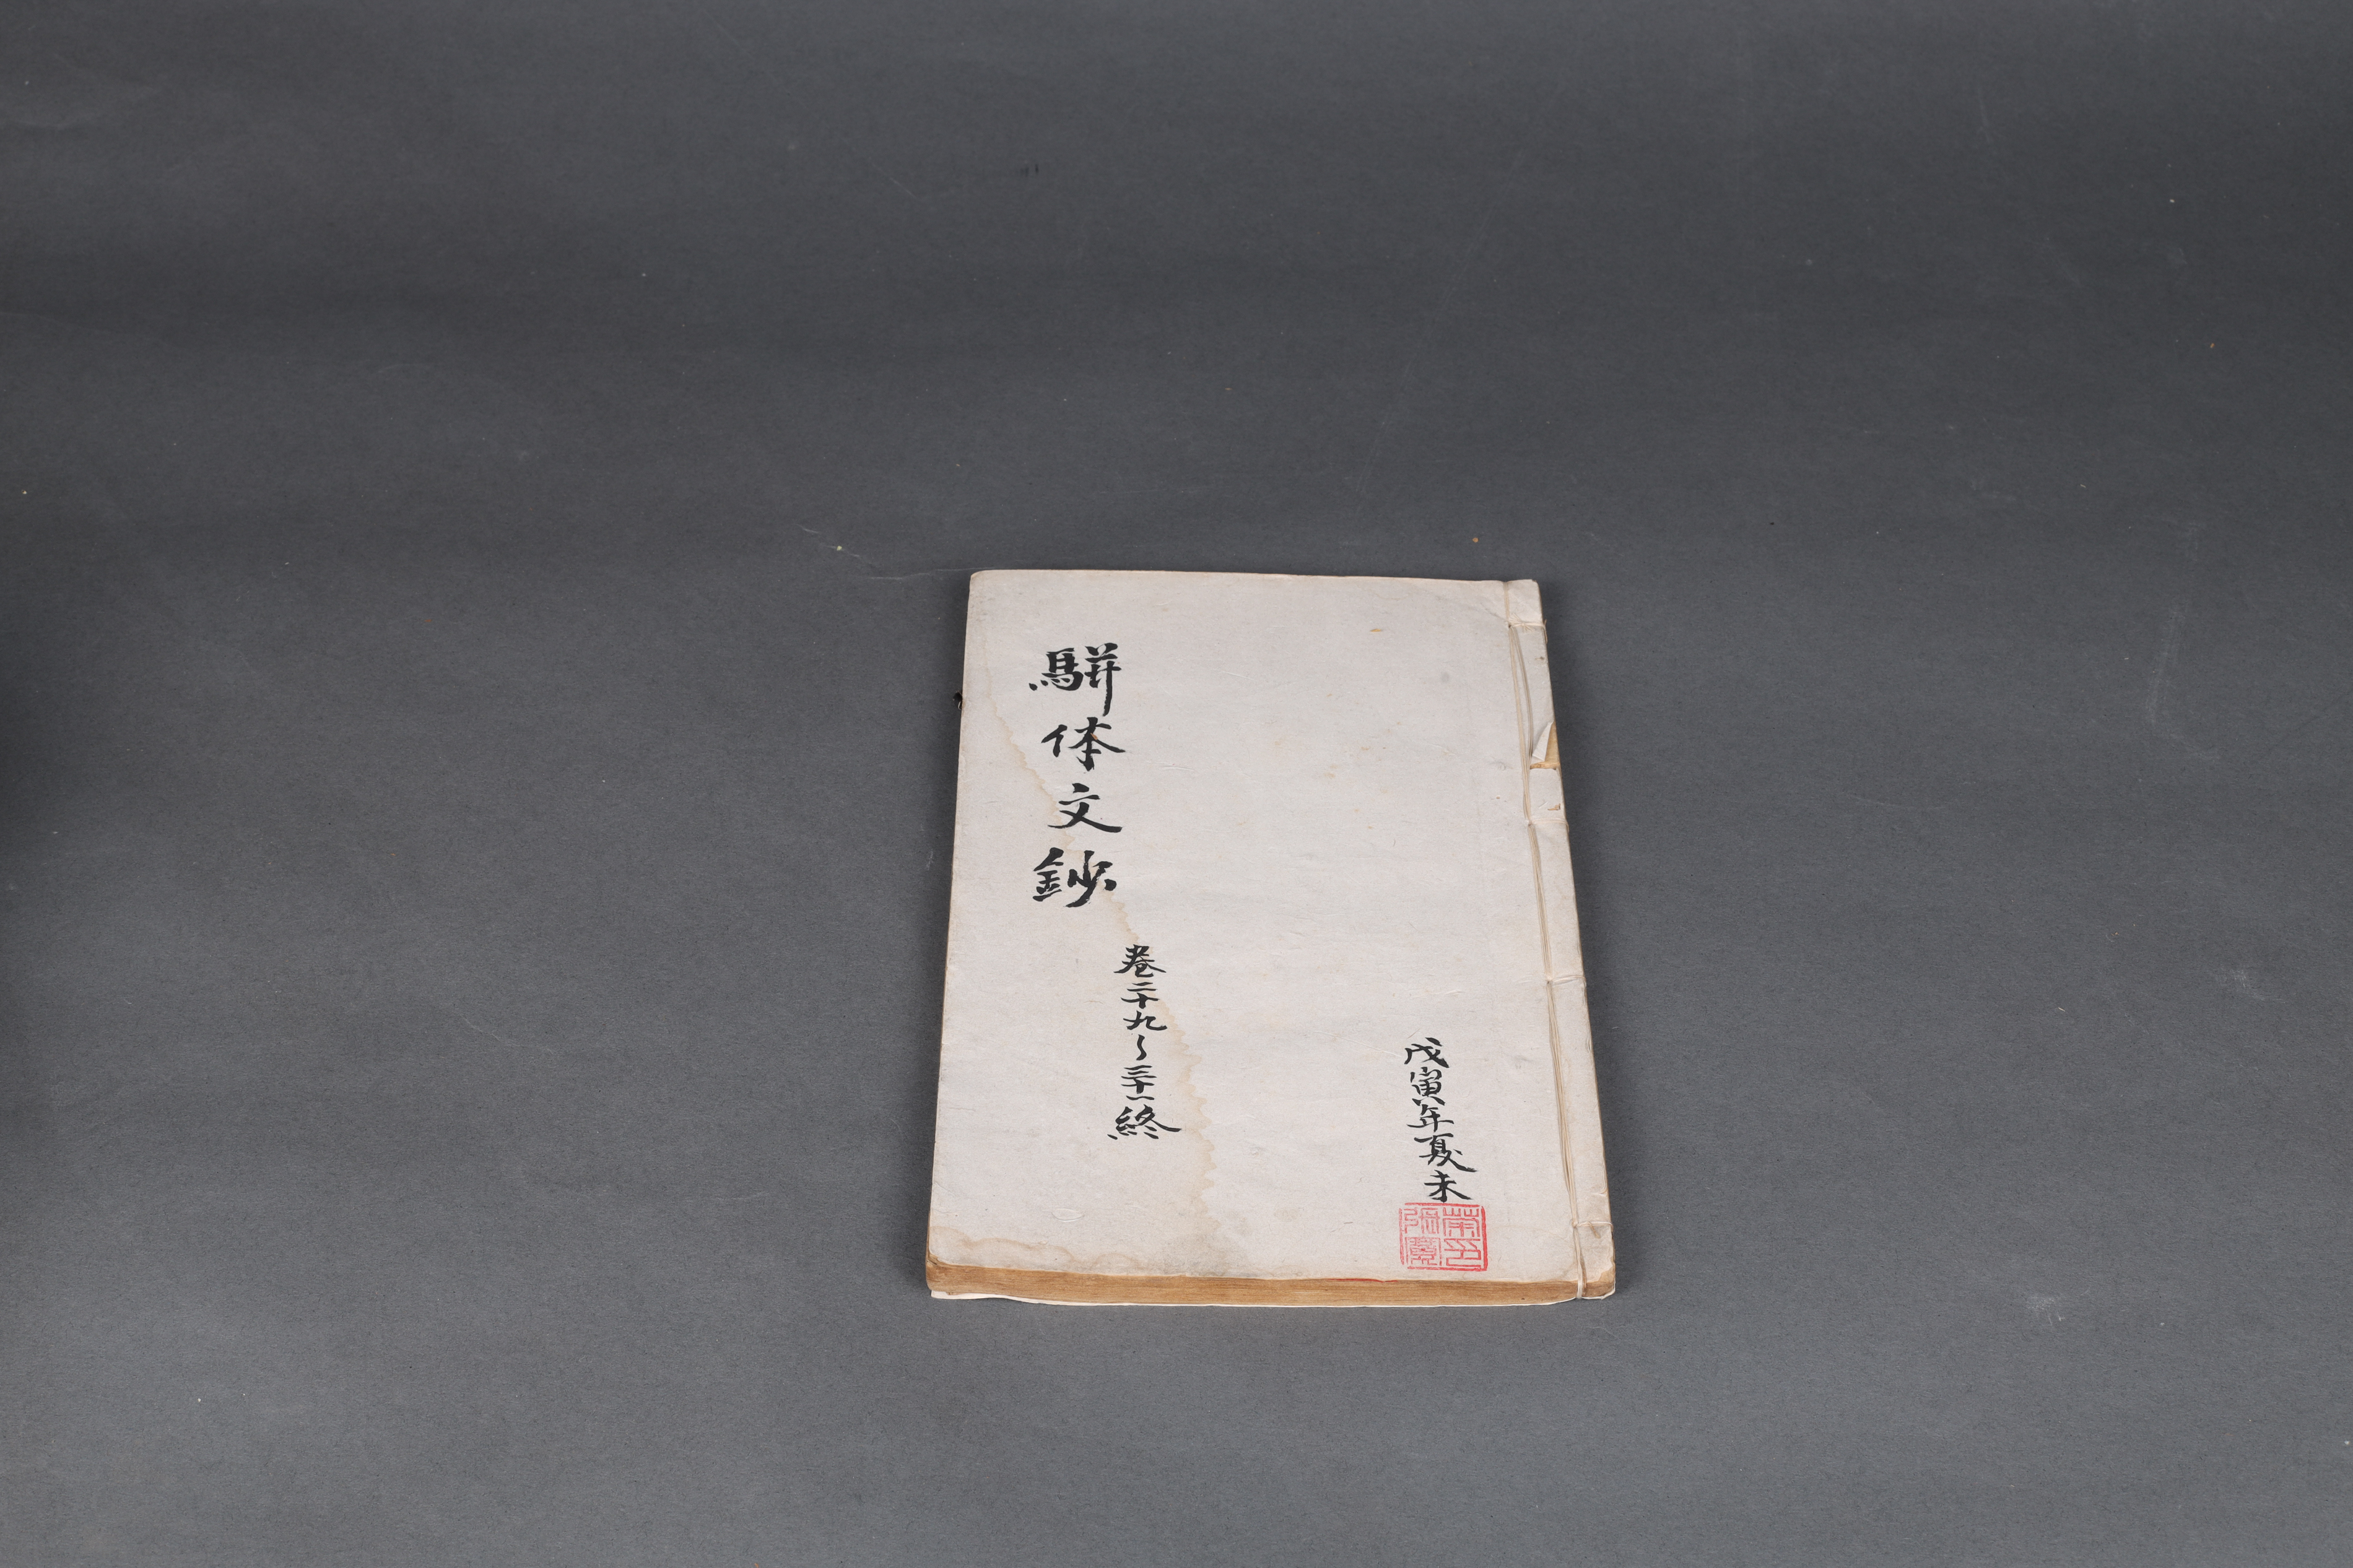 駢体文鈔
卷二十九～三十一終
戊寅年夏末